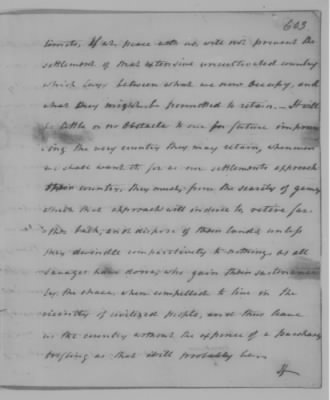 603
towns, If at peace with us, will not prevent the
settlement of that extensive uncultivated country
which lays between what we now Occupy, and
what they might be permitted to retain.— It will
be little or no Obstacle to our for future improv
ing the very country they may retain, whenever
we shall want it. for as our settlements approach
their country, they must, from the scarcity of game,
which that approach will induce to, retire far-
ther back, and dispose of their lands, unless
they dwindle comparatively to nothing, as all
savages have done, who gain their sustenance
by the chace, when compelled to live in the
vicinity of civilized people, and thus leave
us the country without the expence of a purchase
trifling as that will probably be.—